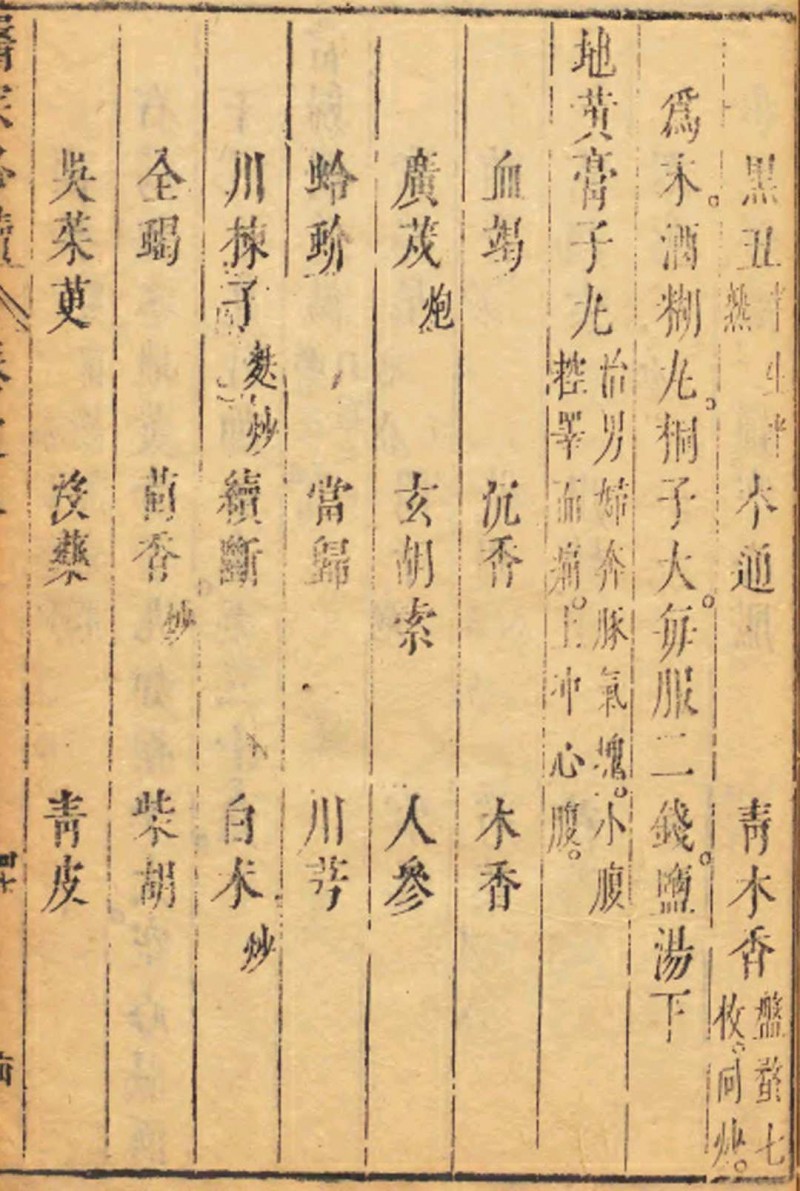 黑丑半生半熟 木通 青木香盤蝥七枚。同炒。
爲末。酒糊丸。桐子大。每服二錢。鹽湯下
地黃膏子丸治男婦奔豚氣塊。小腹控睪而痛。上冲心腹。
血竭 沉香 木香
廣茂炮 玄胡索 人參
蛤蚧 當歸 川芎
川揀子麩炒 續斷 白朮炒
全蝎 茴香炒 柴胡
吳茱萸 沒藥 靑皮